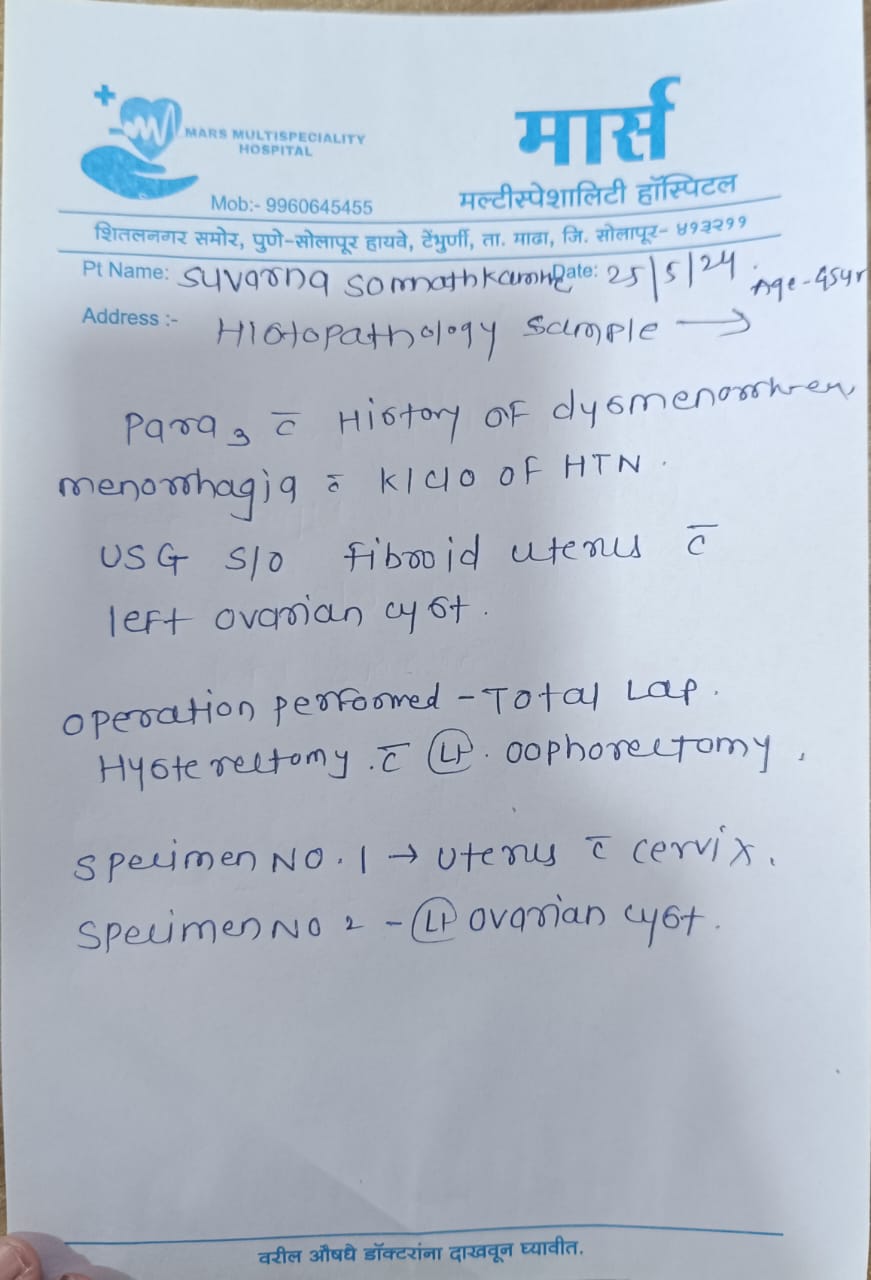 MARS MULTISPECIALITY
HOSPITAL
मार्स
Mob:- 9960645455
मल्टीस्पेशालिटी हॉस्पिटल
शितलनगर समोर, पुणे-सोलापूर हायवे, टेंभुर्णी, ता. माढा, जि. सोलापूर- ४१३२११
Pt Name: Suvarna Somnath Date: 25/5/24 Age - 45yr
Address :- Histopathology sample →
Para 3 c̅ History of dysmenorrhea,
menorrhagia c̅ K/C/O OF HTN.
USG S/O fibroid uterus c̅
left ovarian cyst.
operation performed - Total Lap.
Hysterectomy. c̅ (Lt). oophorectomy,
specimen NO. 1 → uterus c̅ cervix.
specimen NO 2 - (Lt) ovarian cyst.
वरील औषधे डॉक्टरांना दाखवून घ्यावीत.